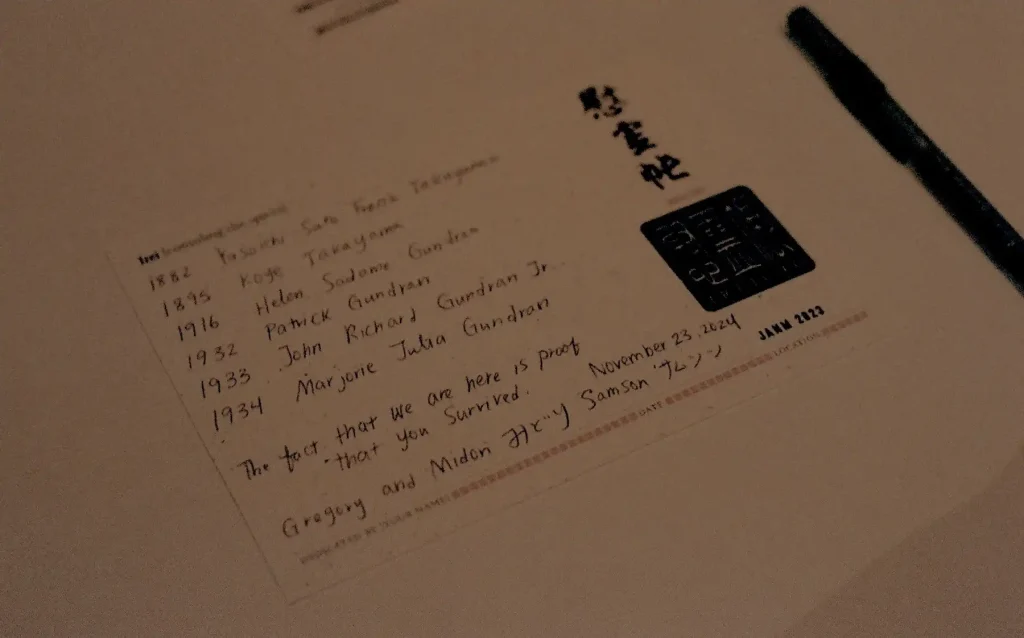 慰霊帖
1882 Yasoichi Sato Takayama
1895 Koge Takayama
1916 Helen Sadame Gundran
1932 Patrick Gundran
1933 John Richard Gundran Jr.
1934 Marjorie Julia Gundran
The fact that we are here is proof
that you survived.
November 23, 2024
JANM 2023
Gregory and Midori Samson サムソン
DATE
LOCATION
DEDICATED BY (YOUR NAME)